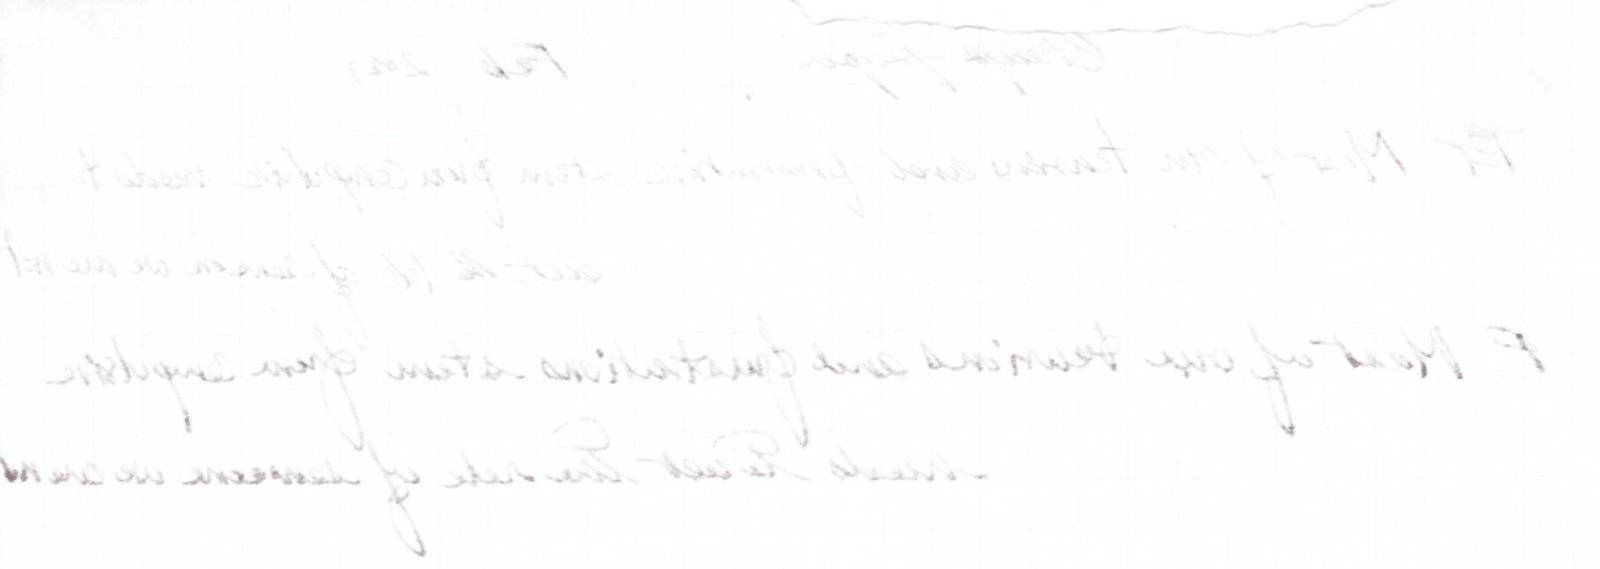 Cheap paper Feb 2021
EF Most of our tensions and frustrations stem from compulsive needs to
act the role of someone we are not
F Most of our tensions and frustrations stem from compulsive
needs to act the role of someone we are not